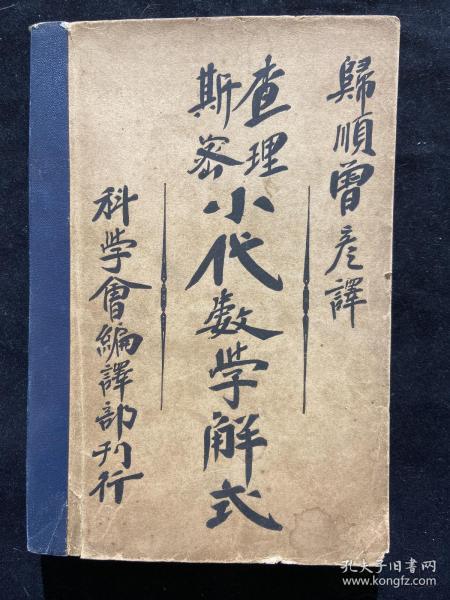 歸順曾彦譯
查理斯密
小代數学解式
科学會編譯部刊行
孔夫子旧书网
www.kongfz.com